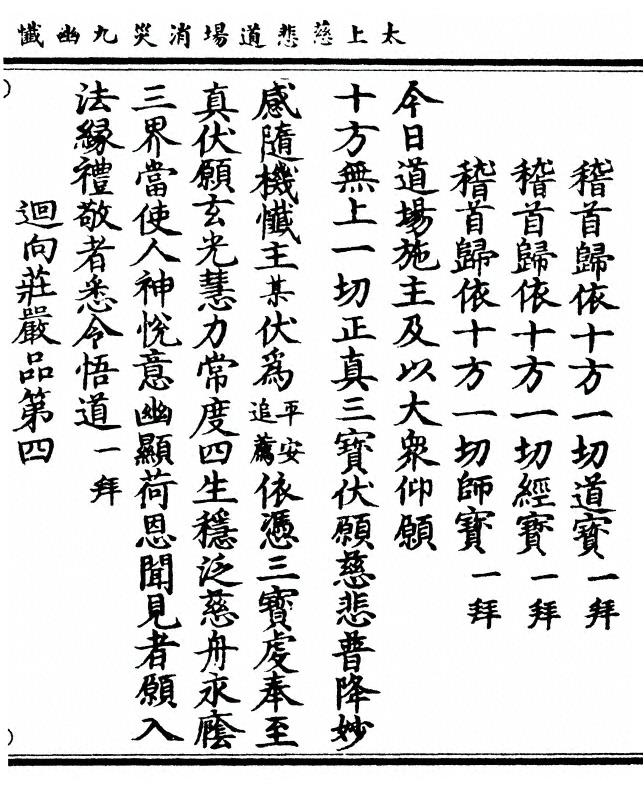 太上慈悲道場消災九幽懺
稽首歸依十方一切道寶一拜
稽首歸依十方一切經寶一拜
稽首歸依十方一切師寶一拜
今日道場施主及以大眾仰願
十方無上一切正真三寶伏願慈悲普降妙
感隨機懺主某伏為平安追薦依憑三寶虔奉至
真伏願玄光慧力常度四生穩泛慈舟永廕
三界當使人神悅意幽顯荷恩聞見者願入
法緣禮敬者悉令悟道一拜
迴向莊嚴品第四